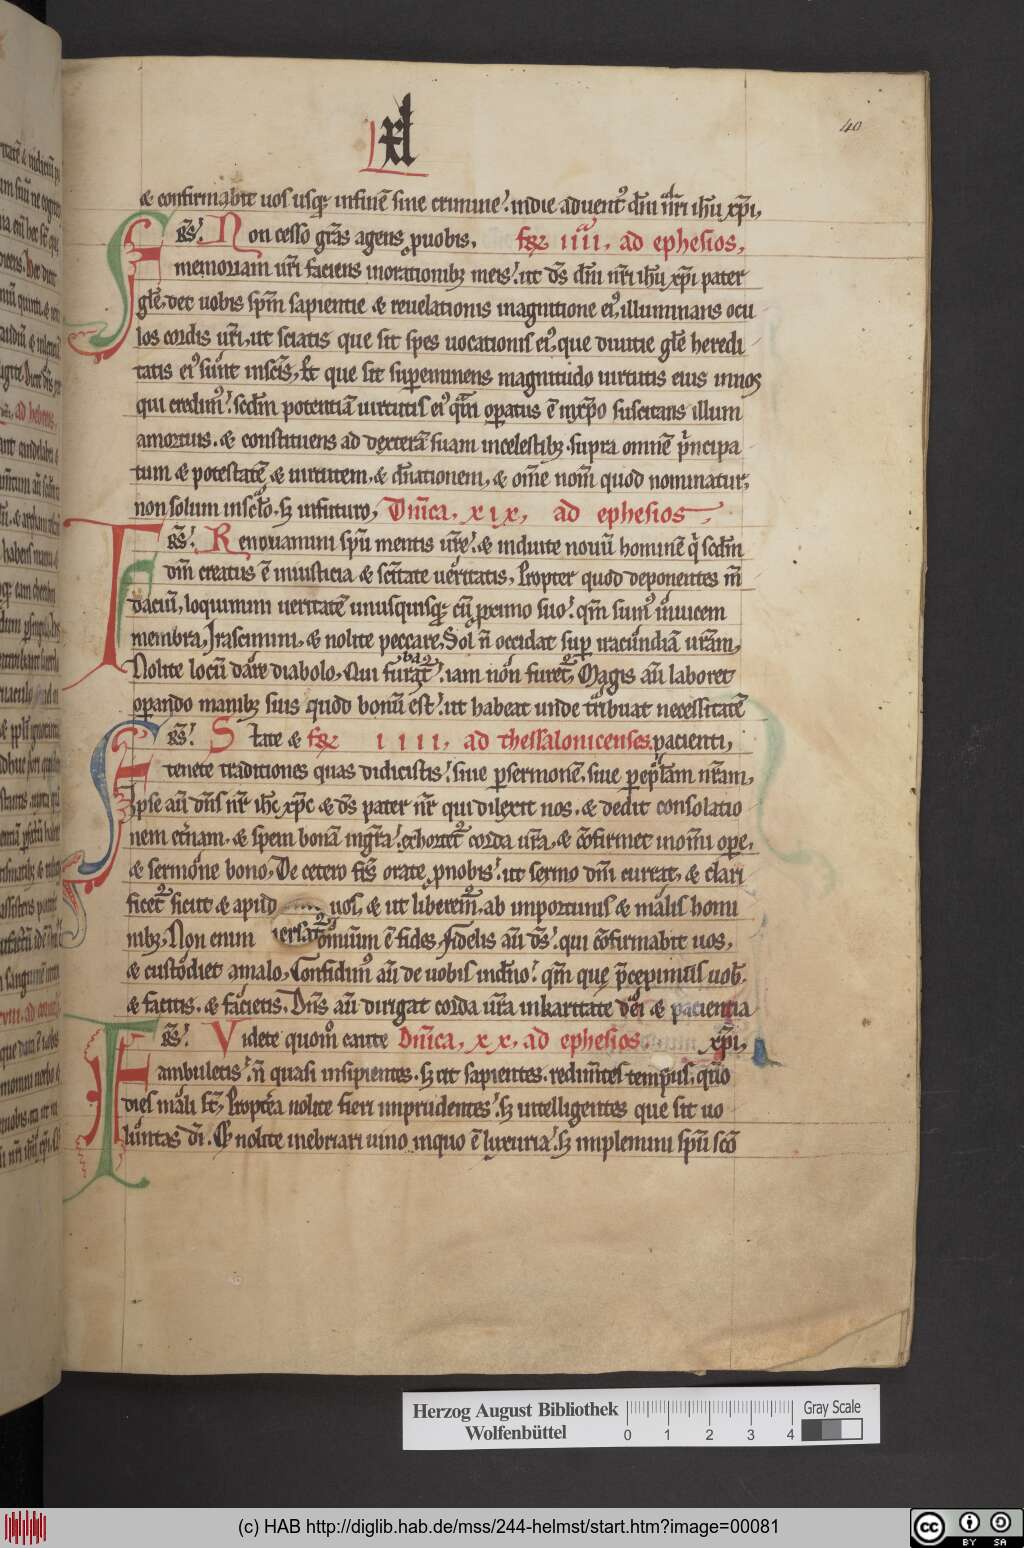 xl
40
& confirmabit uos usq; infinē sine crimine. indie aduent᷒ dn̄i nr̄i ihū xp̄i,
R̄s. Non cesso grās agens ꝓuobis, IIII, ad ephesios,
memoriam ur̄i faciens inorationibꝫ meis. ut d̄s dn̄i nr̄i ihū xp̄i pater
glē, det uobis spm̄ sapientie & reuelationis inagnitione ei᷒, illuminatis ocu
los cordis ur̄i, ut sciatis que sit spes uocationis ei᷒, que diuitie glē heredi
tatis ei᷒ sunt insc̄is, Et que sit suꝑeminens magnitudo uirtutis eius innos
qui credim᷒. scdm̄ potentiā uirtutis ei᷒ qm̄ oꝑatus ē inxp̄o suscitans illum
amortuis. & constituens ad dexterā suam incelestibꝫ. supra omnē pⁱncipa
tum & potestatē, & uirtutem, & dn̄ationem, & om̄e nom̄ quod nominatur,
non solum insclo, sꝫ infuturo, Dn̄ica, xix, ad ephesios
R̄s. Renouamini spū mentis ur̄e, & induite nouū hominē qⁱ scdm̄
dm̄ creatus ē iniusticia & sc̄itate ueritatis, Propter quod deponentes m̄
daciū, loquimini ueritatē unusquisq; cū ꝓximo suo. qm̄ sum᷒ inuicem
membra, Irascimini, & nolite peccare, Sol n̄ occidat suꝑ iracundiā ur̄am,
Nolite locū dare diabolo, Qui furat᷒. iam non furet᷒, Magis aū laboret
oꝑando manibꝫ suis quod bonū est. ut habeat unde tribuat necessitatē
R̄s. State & IIII, ad thessalonicenses, pacienti,
tenete traditiones quas didicistis. siue ꝑsermonē, siue ꝑepl̄am nr̄am,
Ipse aū dn̄s nr̄ ihc̄ xp̄c & d̄s pater nr̄ qui dilexit nos, & dedit consolatio
nem et̄nam, & spem bonā ingr̄a. exhortet᷒ corda ur̄a, & cōfirmet inom̄i oꝑe,
& sermone bono, De cetero fr̄s orate ꝓnobis. ut sermo dn̄i currat, & clari
ficet᷒ sicut & apud uos, & ut liberem᷒, ab importunis & malis homi
nibꝫ, Non enim omnium ē fides, Fidelis aū d̄s. qui cōfirmabit uos,
& custodiet amalo, Confidim᷒ aū de uobis indn̄o. qm̄ que p̄cepimus uob̄.
& facitis, & facietis, Dn̄s aū dirigat corda ur̄a inkaritate dei & paciencia
R̄s. Videte quom̊ caute Dn̄ica, xx, ad ephesios, xp̄i,
ambuletis. n̄ quasi insipientes, sꝫ ut sapientes, redimētes tempus, qm̄
dies mali st̄, Propterea nolite fieri imprudentes. sꝫ intelligentes que sit uo
luntas dī. Et nolite inebriari uino inquo ē luxuria. sꝫ implemini spū scō
Herzog August Bibliothek
Wolfenbüttel
0 1 2 3 4
Gray Scale
(c) HAB http://diglib.hab.de/mss/244-helmst/start.htm?image=00081
cc BY SA